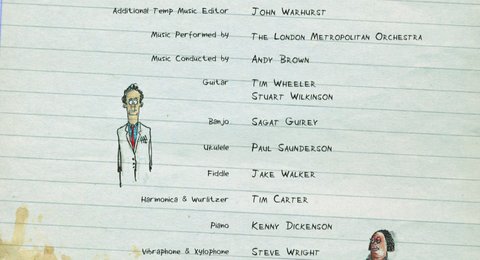 Additional Temp Music Editor John Warhurst
Music Performed by The London Metropolitan Orchestra
Music Conducted by Andy Brown
Guitar Tim Wheeler
Stuart Wilkinson
Banjo Sagat Guirey
Ukulele Paul Saunderson
Fiddle Jake Walker
Harmonica & Wurlitzer Tim Carter
Piano Kenny Dickenson
Vibraphone & Xylophone Steve Wright